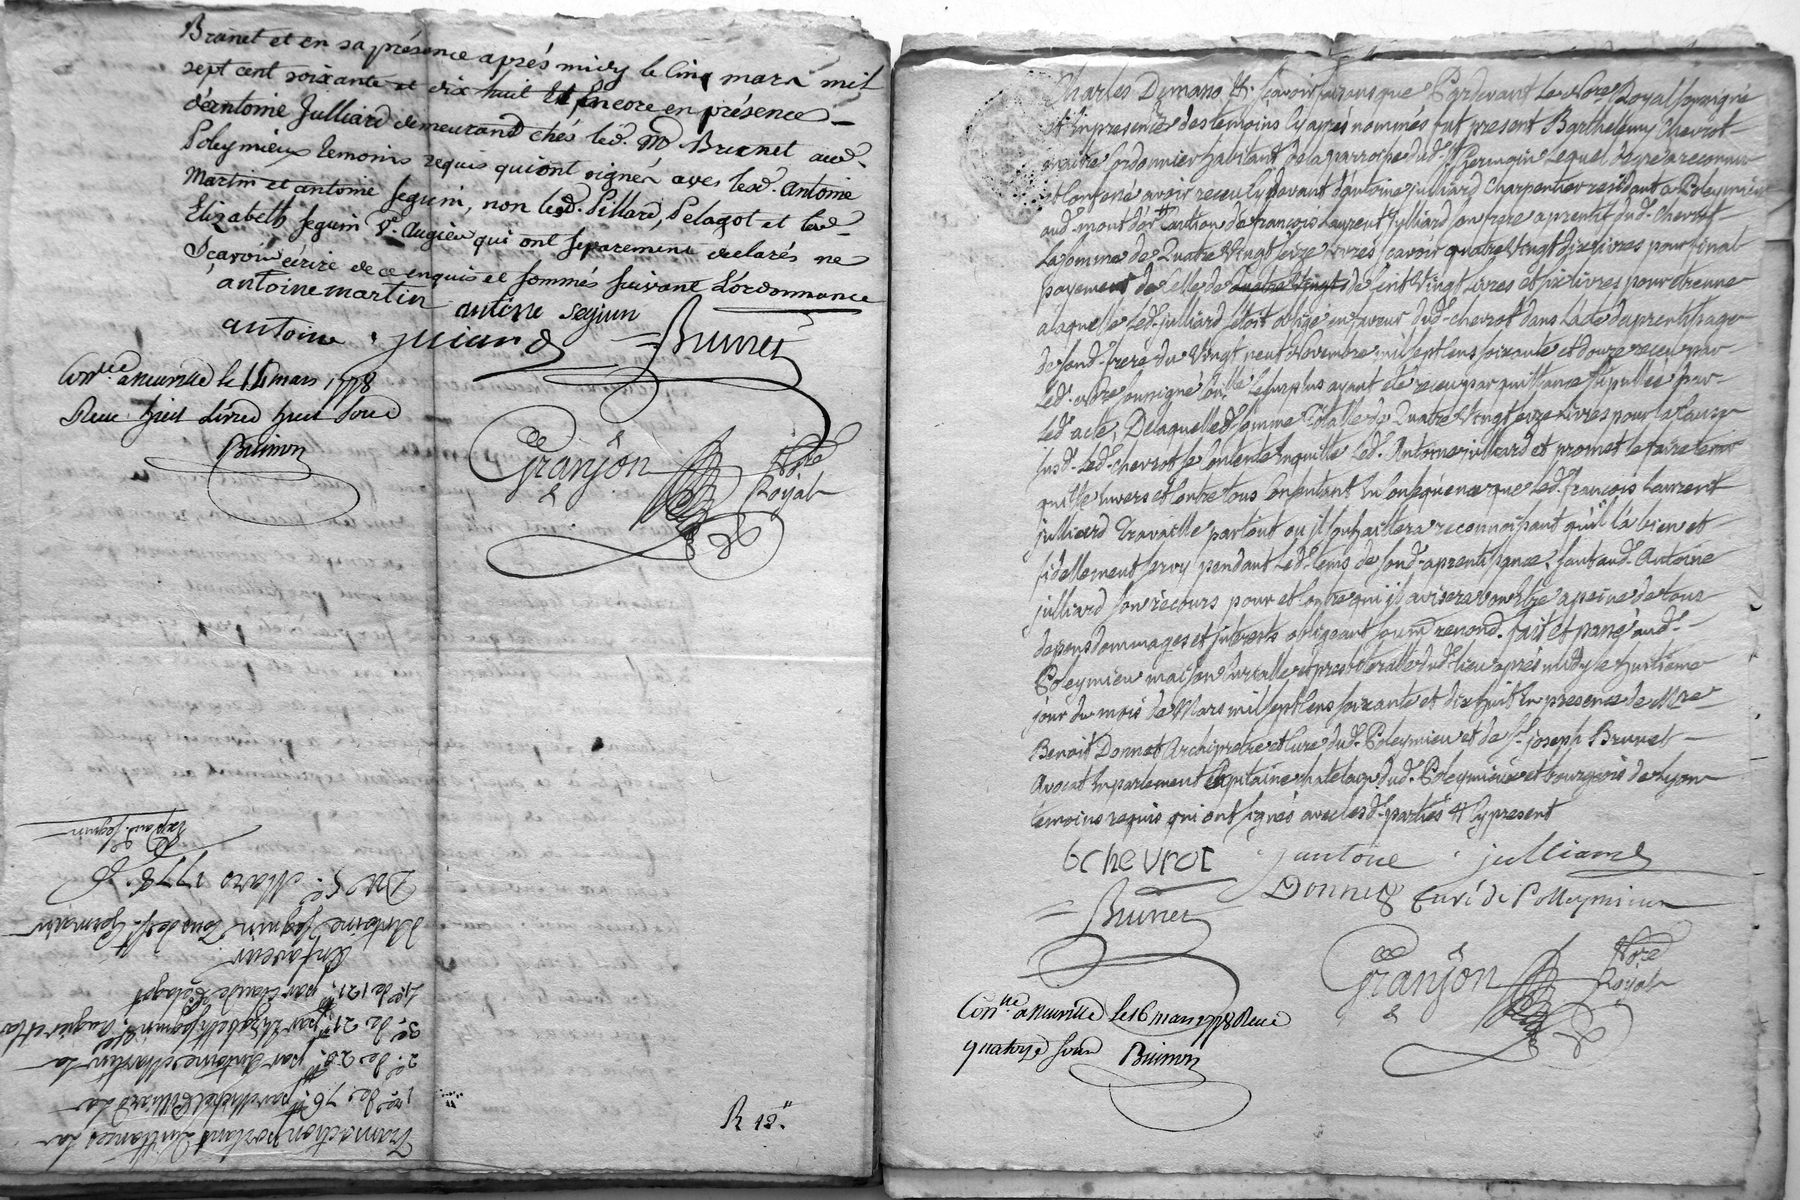 Brunet et en sa présence aprés midy le Cinq mars mil
sept cent soixante et dix huit Et Encore en présence
d'antoine Julliard demeurand chés led. Brunet aud.
Poleymieux temoins requis qui ont signés avec lesd. antoine
Martin et antoine Seguin, non led. Pillard, Pelagot et lad.
Elizabeth Seguin Ve. Augier qui ont separement declarés ne
Sçavoir écrire de ce enquis et sommés suivant L'ordonnance
antoine martin
antoine seguin
antoine juliard
Brunet
à neuville le mars 1778
Reçu huit Livres huit sous
Granjon
Nore
Royal
Transaction portant quittances La
1re de 76 par Michel Pilliard La
2e. de 28 par Antoine Martin La
3e. de 21 par Elizabeth Seguin Ve. Augier et la
4e. de 121 par Claude Pelagot
En faveur
d'Antoine Seguin Tous de St. Germain
Du 5e. Mars 1778.
R 12.
Charles Dumano &. sçavoir faisons que Pardevant Le Nore Royal soussigné
et En presence des temoins Cy après nommés fut present Barthelemy Chevrot
maitre Cordonnier habitant de la parroisse dud. St. Germain Lequel de gré a reconnu
et Confessé avoir receu Cy devant d'antoine julliard Charpentier residant a Poleymieu
aud. mont d'or Caution de françois Laurent julliard son frere aprentif dud. Chevrot
La somme de Quatre Vingt seize Livres sçavoir quatre Vingt dix livres pour final
payement de Celle de de Cent Vingt Livres et six livres pour etrenne
a laquelle Led. julliard s'etoit obligé en faveur dud. Chevrot dans L'acte d'aprentissage
de sond. frere du Vingt neuf Novembre mil sept Cens soixante et douze receu par
Led. Nore soussigné Le surplus ayant eté receu par quittance stipullée par
Led. acte, De laquelle somme Totalle de Quatre Vingt seize Livres pour la Cause
susd. Led. Chevrot se Contente En quitte Led. Antoine julliard et promet le faire tenir
quitte Envers et Contre tous Consentant En Consequence que Led. françois Laurent
julliard travaille partout ou il souhaittera reconnoissant qu'il l'a bien et
fidellement servy pendant Led. tems de sond. aprentissage. sauf aud. Antoine
julliard son recours pour et Contre qui il avisera bon etre a peine de tous
depens dommages et interets obligeant soum renond. fait et passé aud.
Poleymieu maison Curialle et presbiteralle dud. lieu après midy le huitieme
jour du mois de Mars mil sept Cens soixante et dix huit En presence de Mre
Benoit Donnet Archipretre et Curé dud. Poleymieu et de Sr. joseph Brunet
Avocat En parlement Capitaine chatelain dud. Poleymieu et bourgeois de Lyon
temoins requis qui ont signés avec lesd. parties & Cy present
b chevrot
antoine julliard
Brunet
Donnet Curé de Polleymieux
Granjon
Nore
Royal
à neuville le 16 mars 1778 Reçu
quatorze sous